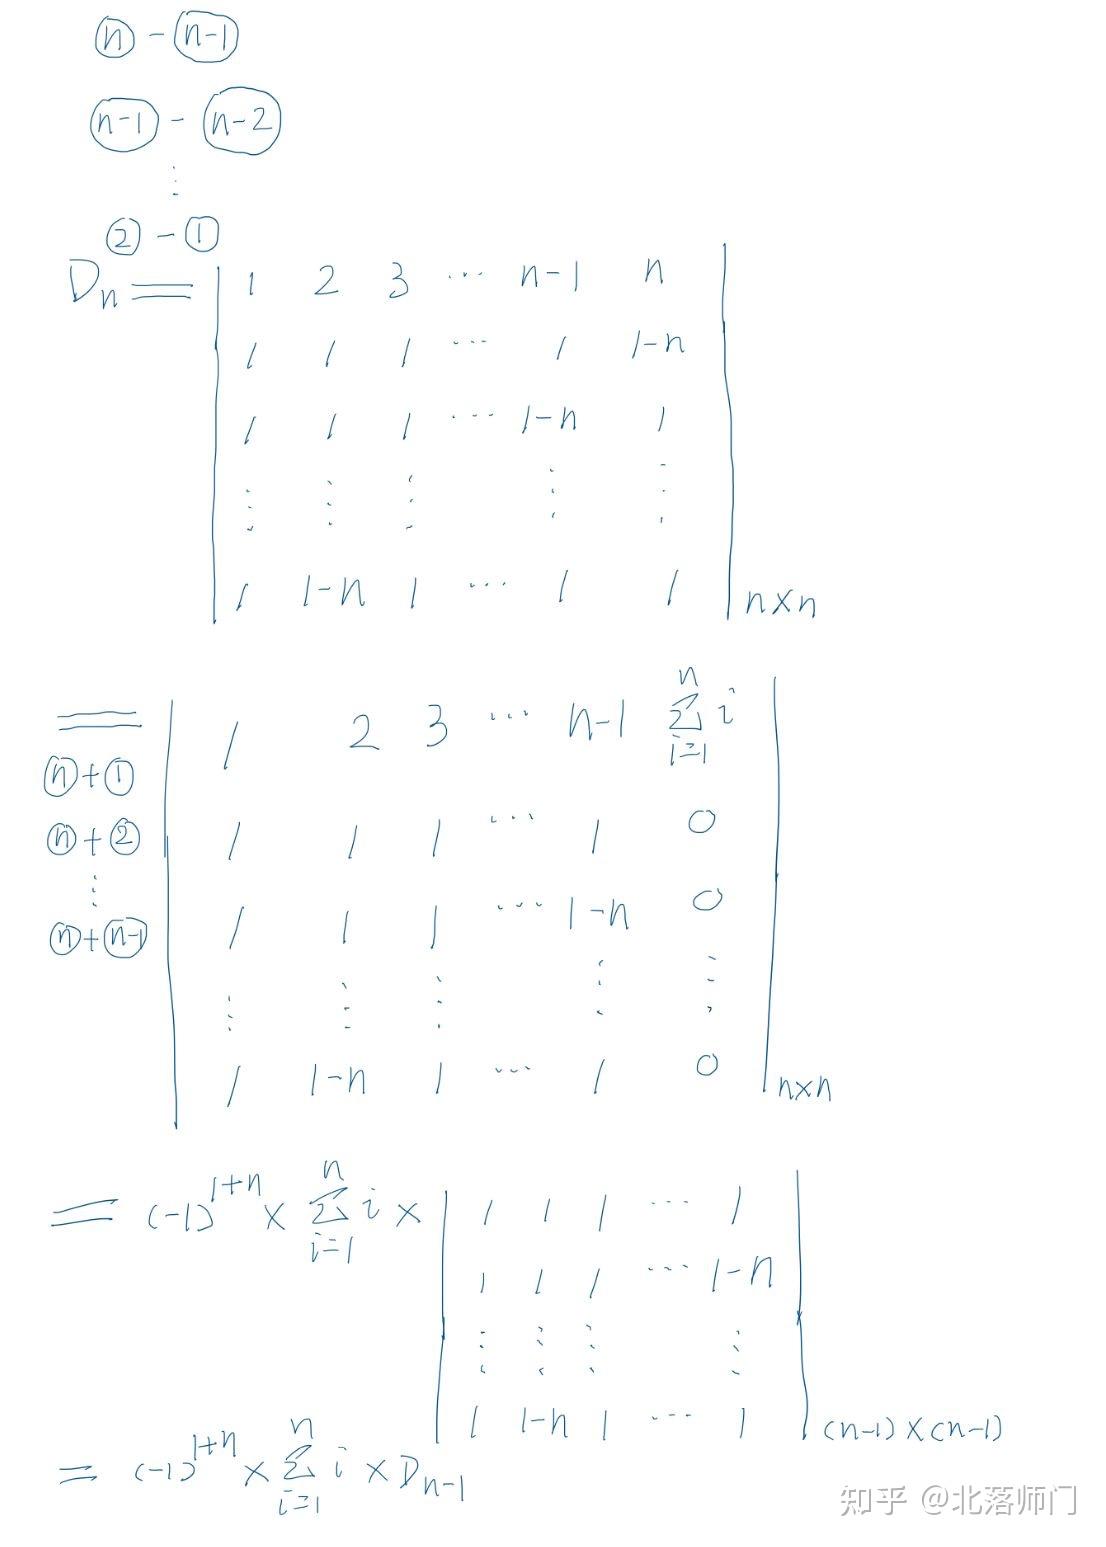 ⓝ - (n-1)
(n-1) - (n-2)
⋮
② - ①
Dₙ = | 1 2 3 ⋯ n-1 n |
| 1 1 1 ⋯ 1 1-n |
| 1 1 1 ⋯ 1-n 1 |
| ⋮ ⋮ ⋮ ⋮ ⋮ |
| 1 1-n 1 ⋯ 1 1 | n×n
= | 1 2 3 ⋯ n-1 ∑ⁿᵢ₌₁ i |
ⓝ+①
ⓝ+② | 1 1 1 ⋯ 1 0 |
⋮
ⓝ+(n-1) | 1 1 1 ⋯ 1-n 0 |
| ⋮ ⋮ ⋮ ⋮ ⋮ |
| 1 1-n 1 ⋯ 1 0 | n×n
= (-1)¹⁺ⁿ × ∑ⁿᵢ₌₁ i × | 1 1 1 ⋯ 1 |
| 1 1 1 ⋯ 1-n |
| ⋮ ⋮ ⋮ ⋮ |
| 1 1-n 1 ⋯ 1 | (n-1)×(n-1)
= (-1)¹⁺ⁿ × ∑ⁿᵢ₌₁ i × Dₙ₋₁
知乎 @北落师门